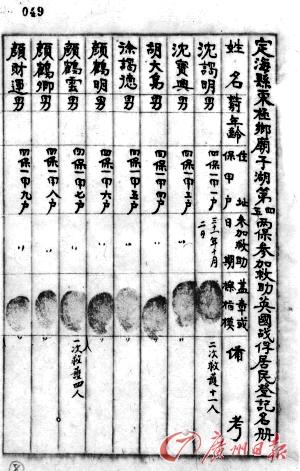 049
定海縣東極鄉廟子湖第四五兩保參加救助英國战俘居民登記名册
姓名 年齡 住址 保甲户 參加救助日期 盖章或 備考
沈 明 男 四保一甲一户 三十一年十月二日 二次救護十一人
沈寶興 男 四保一甲三户 〃
胡大 男 四保一甲四户 〃
徐 德 男 四保一甲五户 〃
顏鶴明 男 四保一甲六户 〃
顏鶴雲 男 四保一甲七户 〃 一次救護四人
顏鶴卿 男 四保一甲八户 〃
顏財運 男 四保一甲九户 〃
廣州日报